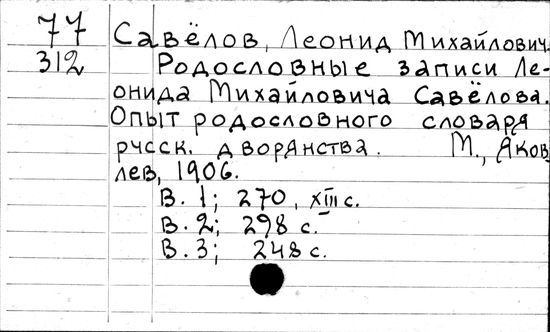 77 Савёлов, Леонид Михайлович.
312 Родословные записи Ле-
онида Михайловича Савёлова.
Опыт родословного словаря
русск. дворянства. М., Яков
лев, 1906.
В. 1; 270, XIII с.
В. 2; 298 с.
В. 3; 248 с.